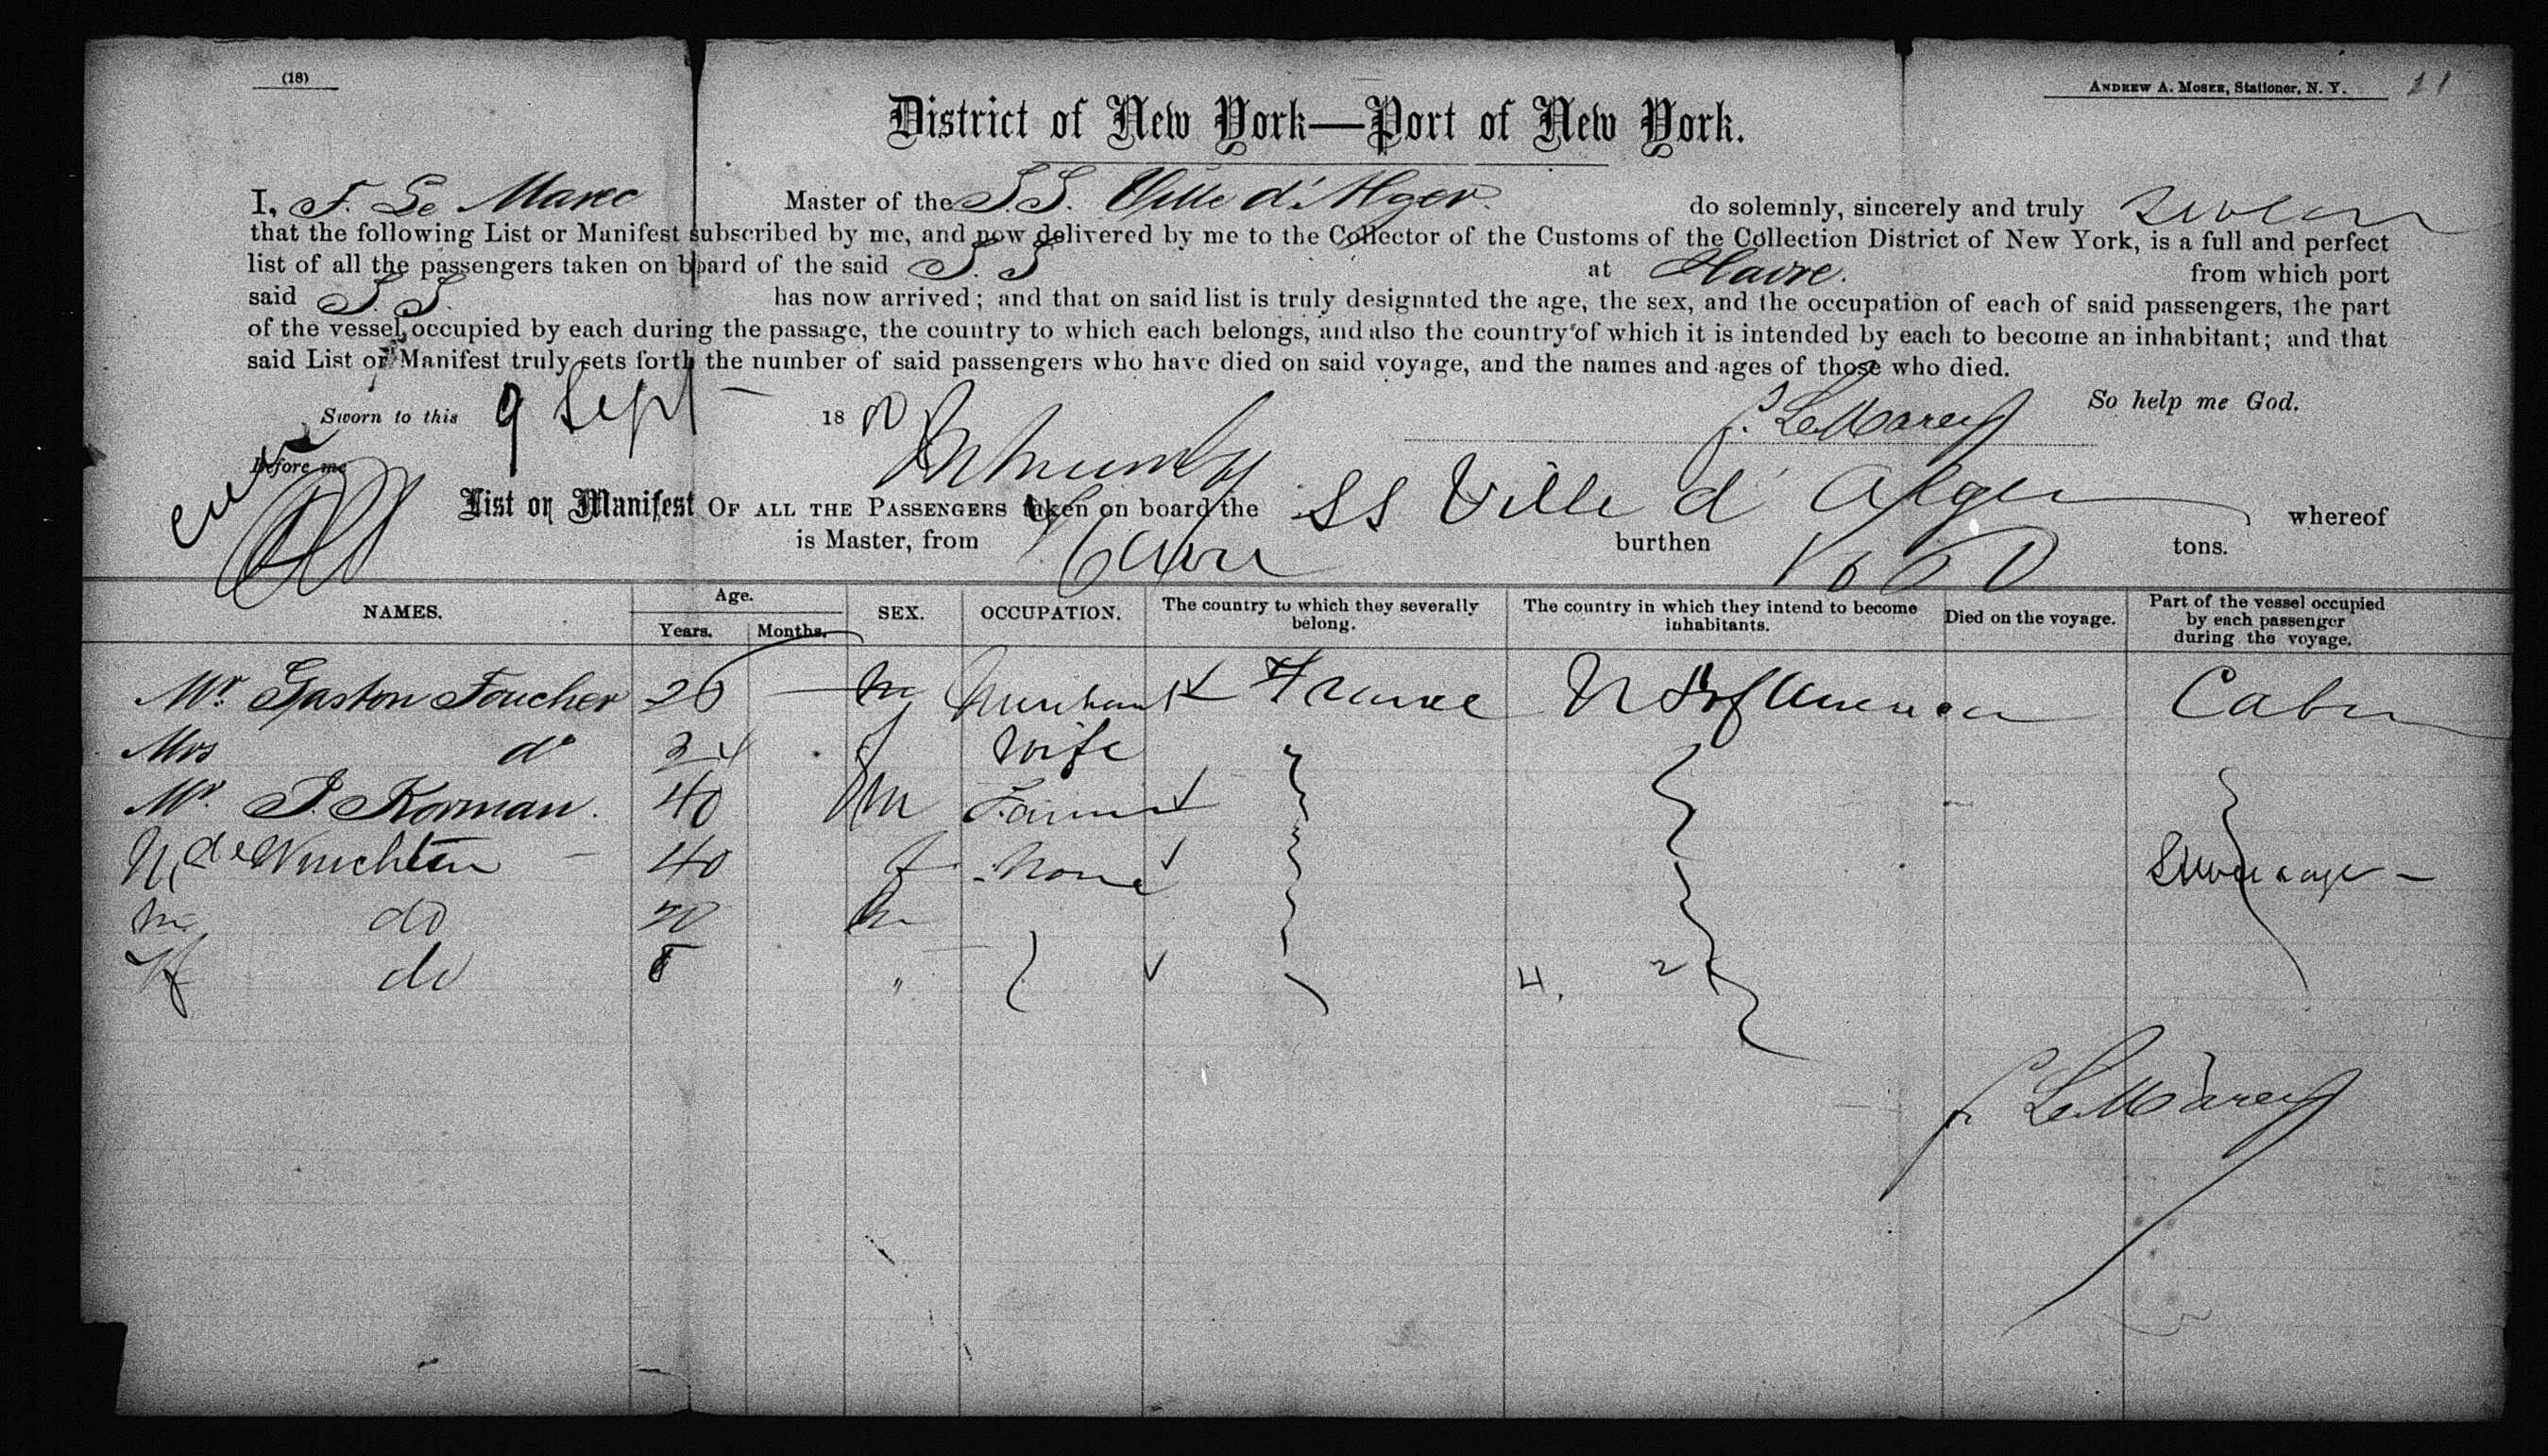 (18)
ANDREW A. MOSER, Stationer, N. Y.
District of New York—Port of New York.
I, F. Le Marec Master of the S.S. Ville d'Alger do solemnly, sincerely and truly swear
that the following List or Manifest subscribed by me, and now delivered by me to the Collector of the Customs of the Collection District of New York, is a full and perfect
list of all the passengers taken on board of the said S. S at Havre. from which port
said S. S. has now arrived; and that on said list is truly designated the age, the sex, and the occupation of each of said passengers, the part
of the vessel occupied by each during the passage, the country to which each belongs, and also the country of which it is intended by each to become an inhabitant; and that
said List or Manifest truly sets forth the number of said passengers who have died on said voyage, and the names and ages of those who died.
So help me God.
Sworn to this 9 Sept 18 F. Le Marec
Before me
List or Manifest OF ALL THE PASSENGERS taken on board the SS Ville d'Alger whereof
is Master, from Havre burthen tons.
NAMES. Age. Years. Months. SEX. OCCUPATION. The country to which they severally belong. The country in which they intend to become inhabitants. Died on the voyage. Part of the vessel occupied by each passenger during the voyage.
Mr. Gaston Foucher 26 m Merchant France U S of America Cabin
Mrs do 24 f Wife
Mr. J. Korman. 40 m Farmer
de 40 f None Steerage
m do 20 m
do "
4. 2
F. Le Marec